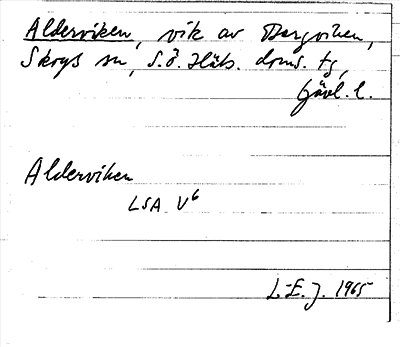 Alderviken, vik av Bergviken,
Skogs sn, S.Ö. Häls. doms. tg,
Gävl. l.
Alderviken
LSA V6
L-E. J. 1965